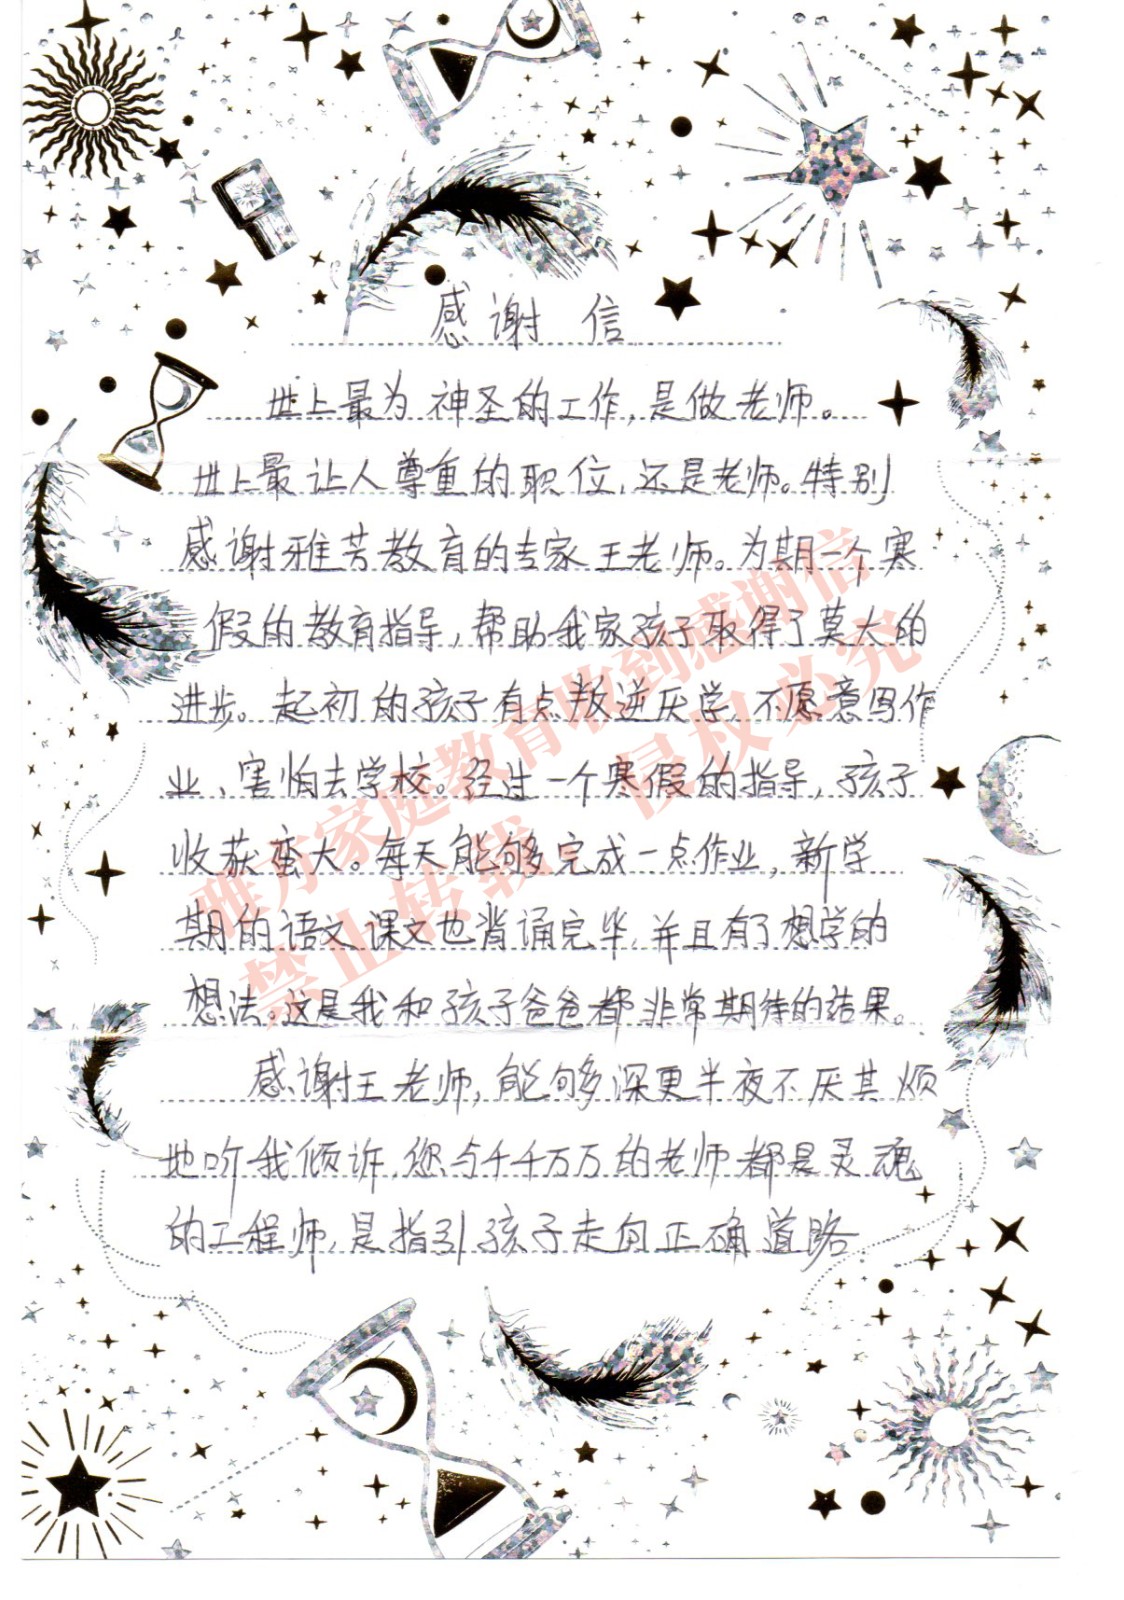 感谢信
世上最为神圣的工作，是做老师。
世上最让人尊重的职位，还是老师。特别
感谢雅芳教育的专家王老师。为期一个寒
假的教育指导，帮助我家孩子取得了莫大的
进步。起初的孩子有点叛逆厌学，不愿意写作
业、害怕去学校。经过一个寒假的指导，孩子
收获蛮大。每天能够完成一点作业，新学
期的语文课文也背诵完毕，并且有了想学的
想法。这是我和孩子爸爸都非常期待的结果。
感谢王老师，能够深更半夜不厌其烦
地听我倾诉，您与千千万万的老师都是灵魂
的工程师，是指引孩子走向正确道路
雅芳家庭教育收到感谢信
禁止转载 侵权必究